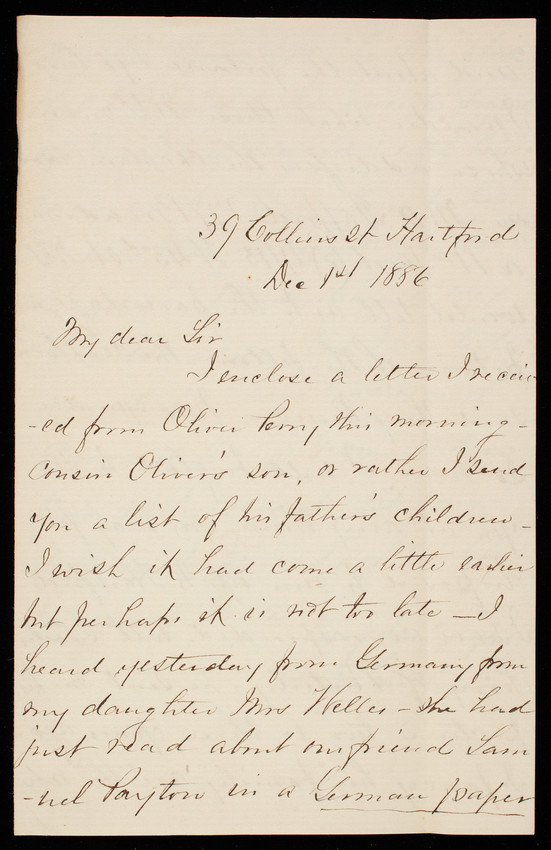 39 Collins St Hartford
Dec 1st 1886
My dear Sir
I enclose a letter I receiv
-ed from Oliver Perry this morning -
Cousin Oliver's son, or rather I send
you a list of his father's children -
I wish it had come a little earlier
but perhaps it is not too late - I
heard yesterday from Germany from
my daughter Mrs Welles - she had
just read about our friend Sam
-uel Payton in a German paper